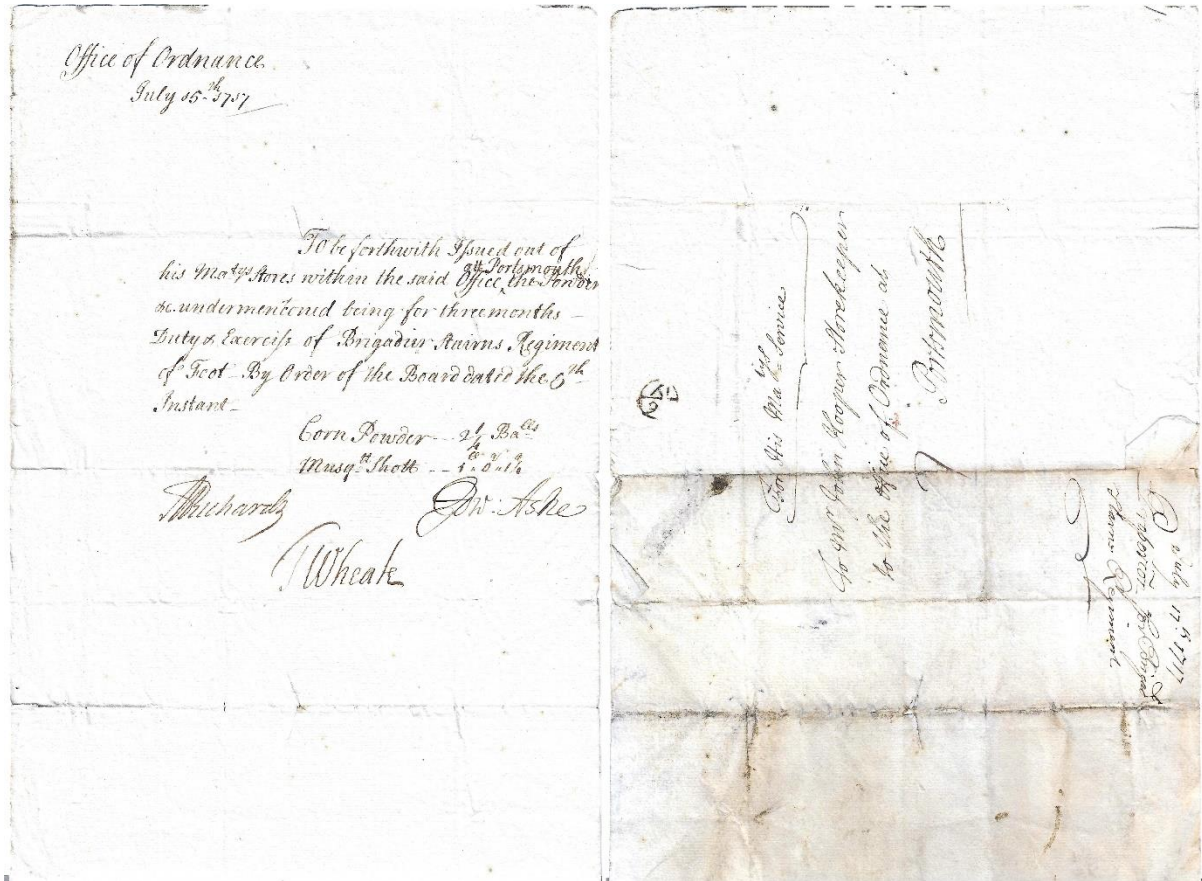 Office of Ordnance
July 15th 1717
To be forthwith Issued out of
his Matys Stores within the said Office att Portsmouth the Powder
&c. undermencõned being for three months
Duty & Exercise of Brigadier Stairns Regiment
of Foot By Order of the Board dated the 5th
Instant
Corn Powder -- 2 1/4 Balls
Musqtt Shott --
MRichards
Edw: Ashe
TWheate
For His Matys Service
To Mr John Hooper Storekeeper
to the Office of Ordnance at
Portsmouth
July 17th 1717
for Brigad
Regiment